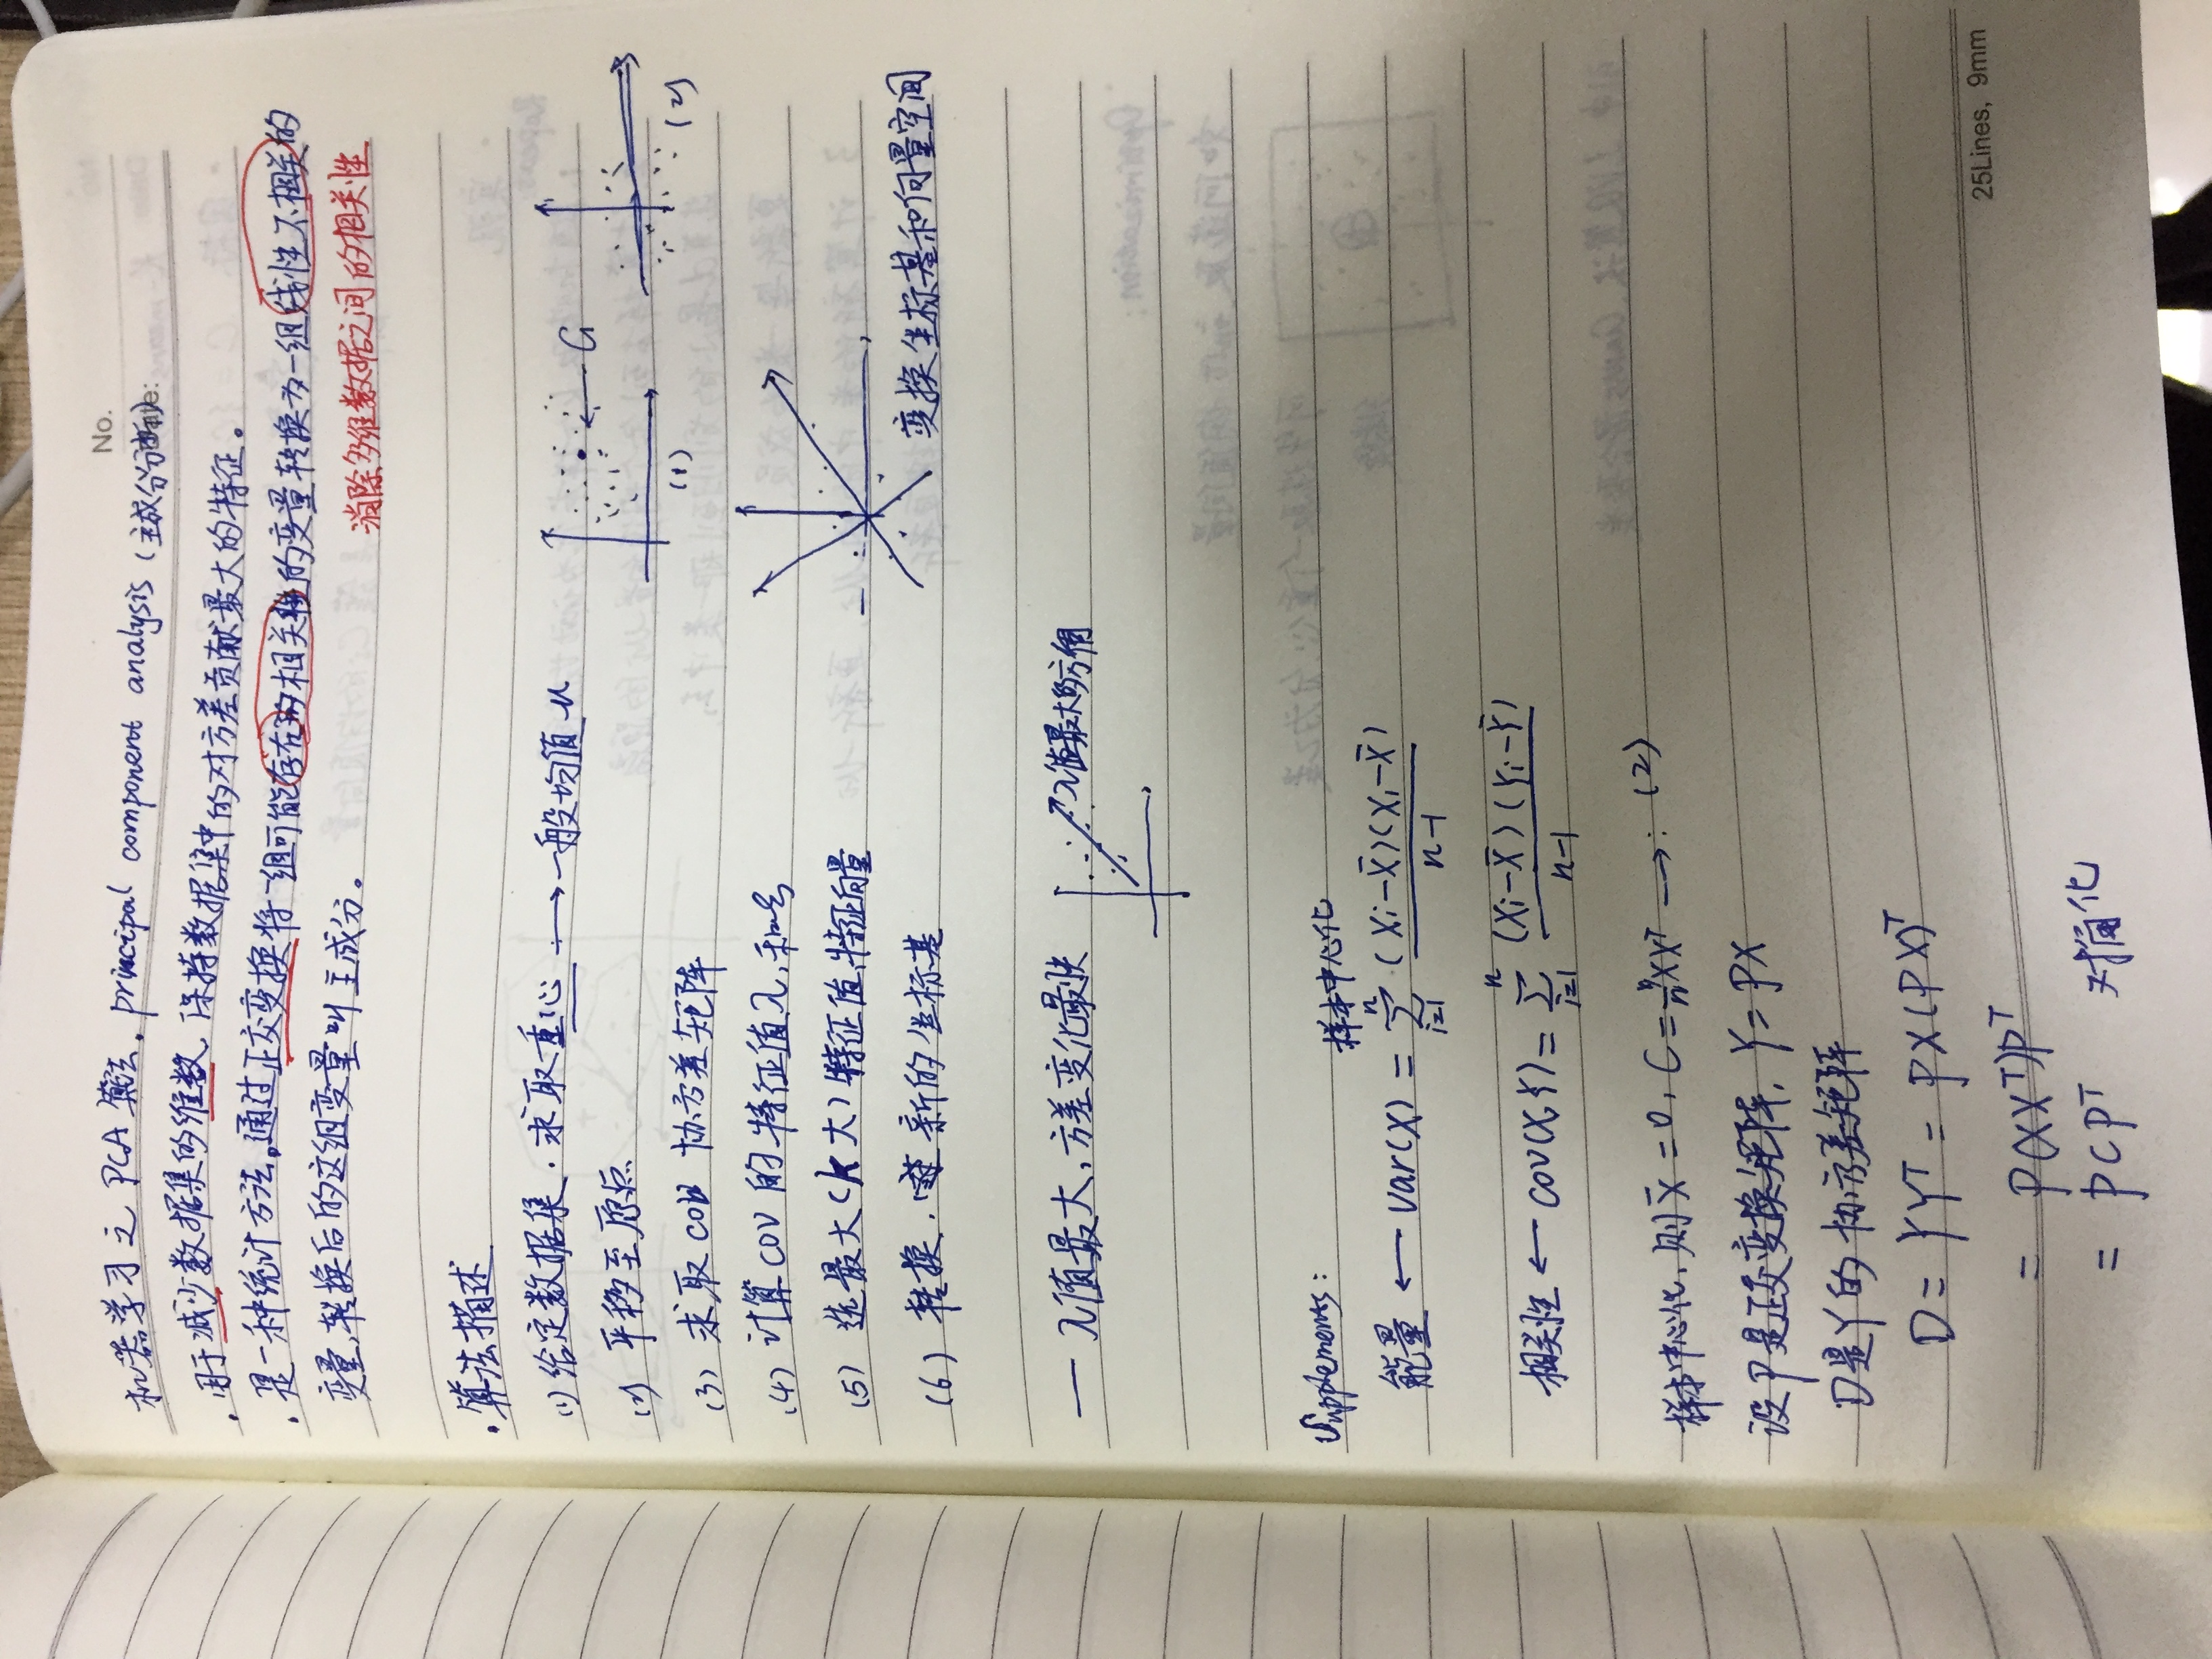 No.
Date:
机器学习之 PCA 算法. principal component analysis (主成分分析)
. 用于减少数据集的维数, 保持数据集中的对方差贡献最大的特征。
. 是一种统计方法。通过正交变换将一组可能存在的相关性的变量转换为一组线性不相关的
变量,转换后的这组变量叫主成分。
消除多维数据之间的相关性
. 算法描述
(1) 给定数据集. 求取重心 → 一般均值 u
G
(2) 平移至原点
(1)
(2)
(3) 求取 cov 协方差矩阵
(4) 计算 cov 的特征值λ, 和ξ
(5) 选最大(k大)特征值,特征向量
(6) 转换. 新的坐标基
变换坐标基和向量空间
— λ值最大, 方差变化最快
λ值最大的方向
Supplements:
样本中心化
能量 ← var(X) = Σ_{i=1}^{n} (Xi-X̄)(Xi-X̄) / n-1
相关性 ← cov(X,Y) = Σ_{i=1}^{n} (Xi-X̄)(Yi-Ȳ) / n-1
样本中心化, 则 X̄ = 0, C = XXᵀ → : (2)
设P是正交变换矩阵, Y = PX
D是Y的协方差矩阵
D = YYᵀ = PX(PX)ᵀ
= P(XXᵀ)Pᵀ
= PCPᵀ 对角化
25Lines, 9mm